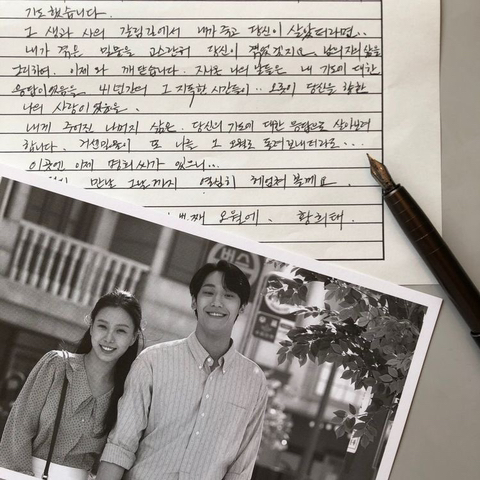 기도했습니다.
그 생과 사의 갈림길에서 내가 죽고 당신이 살았더라면..
내가 겪은 밀물을 고스란히 당신이 겪었겠지요. 남은 자의 삶을
그리하여, 이제 와 깨닫습니다. 지나온 나의 날들은 내 기도에 대한
응답이었음을. 41년간의 그 지독한 시간들이.. 오롯이 당신을 향한
나의 사랑이었음을..
내게 주어진 나머지 삶은, 당신의 기도에 대한 응답으로 살아보려
합니다. 거센 밀물이 또 나를 그 오월로 돌려보내더라도...
이곳엔 이제 명희씨가 있으니...
만날 그날까지 열심히 헤엄쳐 볼게요.
번째 오월에, 황희태
버스